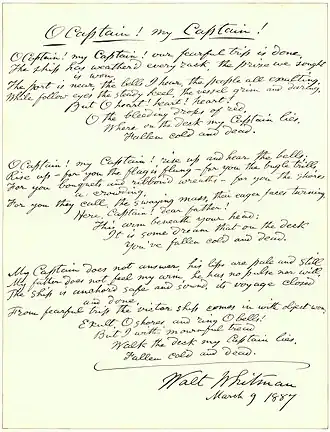 O Captain! my Captain!
O Captain! my Captain! our fearful trip is done,
The ship has weather'd every rack, the prize we sought
is won,
The port is near, the bells I hear, the people all exulting,
While follow eyes the steady keel, the vessel grim and daring,
But O heart! heart! heart!
O the bleeding drops of red,
Where on the deck my Captain lies,
Fallen cold and dead.
O Captain! my Captain! rise up and hear the bells;
Rise up—for you the flag is flung—for you the bugle trills,
For you bouquets and ribbon'd wreaths—for you the shores
a crowding,
For you they call, the swaying mass, their eager faces turning
Here, Captain! dear father!
This arm beneath your head;
It is some dream that on the deck
You've fallen cold and dead.
My Captain does not answer, his lips are pale and still
My father does not feel my arm, he has no pulse nor will,
The ship is anchor'd safe and sound, its voyage closed
and done,
From fearful trip the victor ship comes in with object won,
Exult, O shores and ring O bells!
But I with mournful tread
Walk the deck my Captain lies,
Fallen cold and dead.
Walt Whitman
March 9 1887